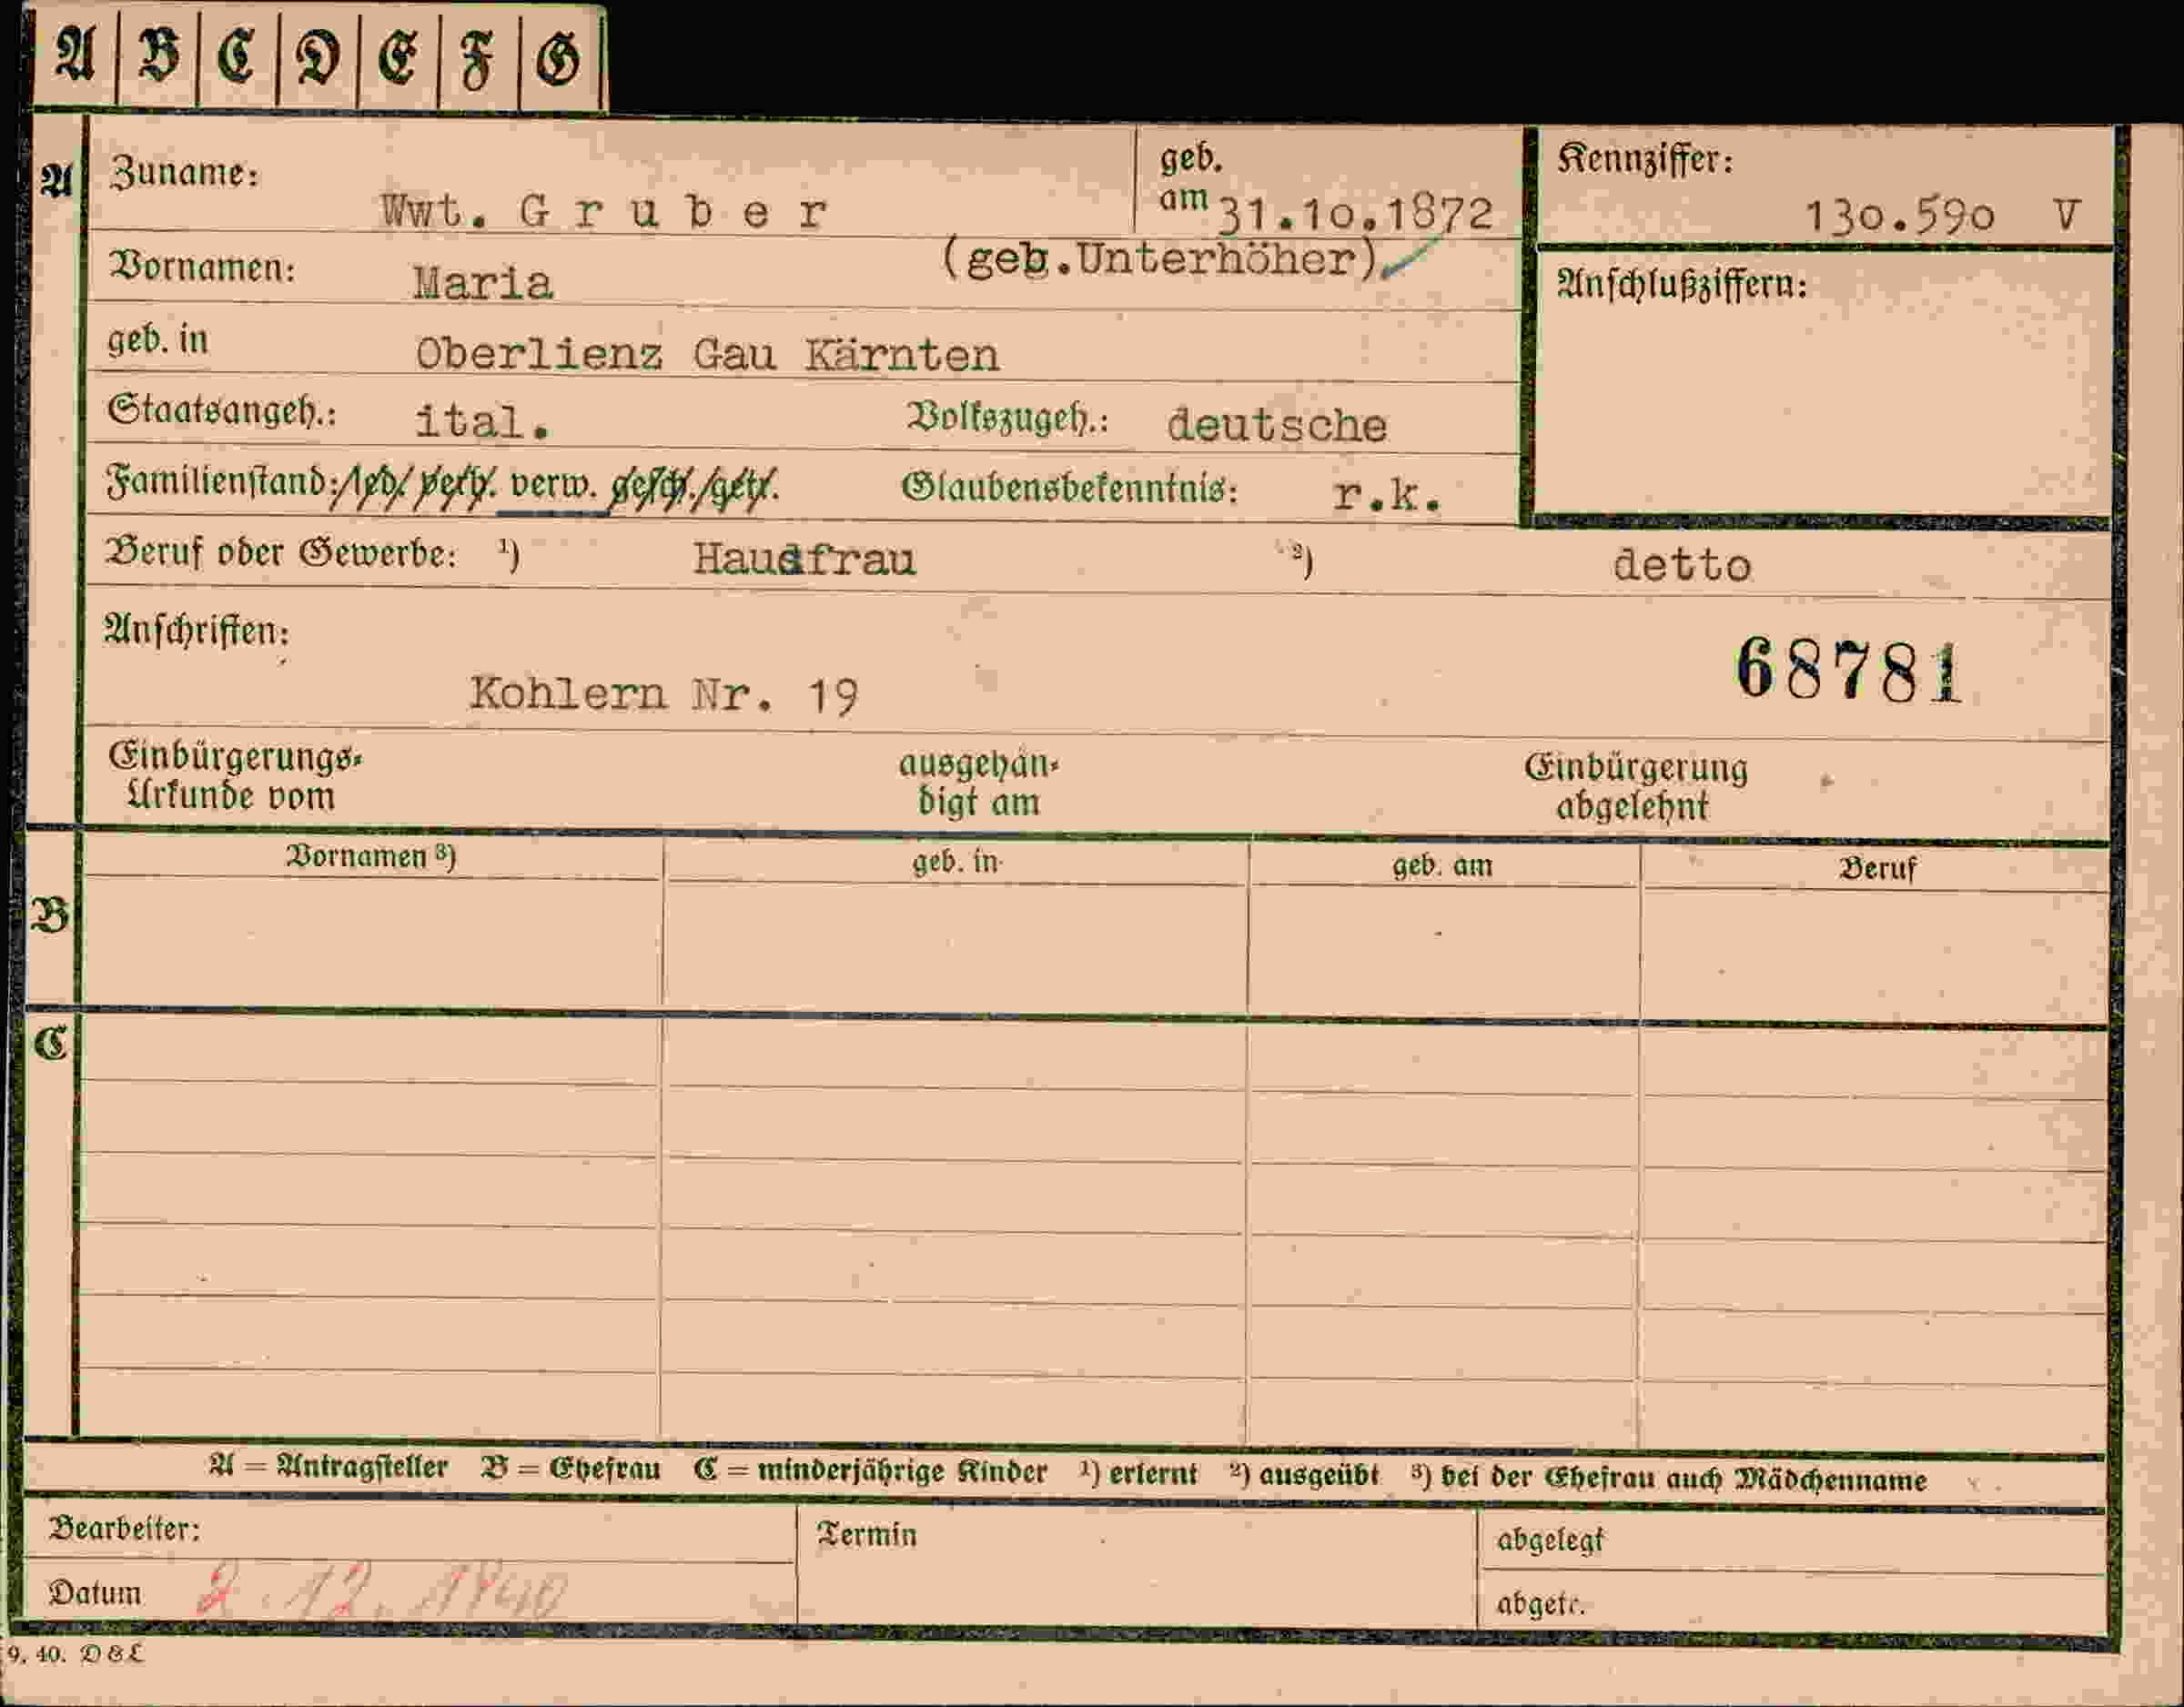 A B C D E F G
A Zuname: Wwt. G r u b e r geb. am 31.10.1872 Kennziffer: 130.590 V
Vornamen: Maria (geb.Unterhöher) Anschlußziffern:
geb. in Oberlienz Gau Kärnten
Staatsangeh.: ital. Volkszugeh.: deutsche
Familienstand: led. verh. verw. gesch. getr. Glaubensbekenntnis: r.k.
Beruf oder Gewerbe: ¹) Hausfrau ²) detto
Anschriften:
68781
Kohlern Nr. 19
Einbürgerungs- ausgehän- Einbürgerung
Urkunde vom digt am abgelehnt
Vornamen ³) geb. in geb. am Beruf
B
C
A = Antragsteller B = Ehefrau C = minderjährige Kinder ¹) erlernt ²) ausgeübt ³) bei der Ehefrau auch Mädchenname
Bearbeiter: Termin abgelegt
Datum 2.12.1940 abgetr.
9. 40. D & L